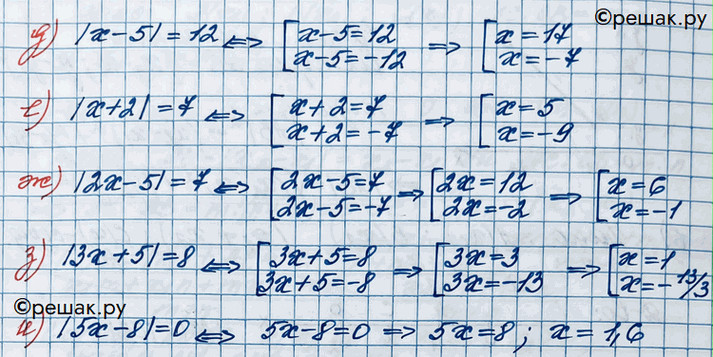 ©решак.ру
д) |x-5|=12 <=> [x-5=12 x-5=-12 => [x=17 x=-7
е) |x+2|=7 <=> [x+2=7 x+2=-7 => [x=5 x=-9
ж) |2x-5|=7 <=> [2x-5=7 2x-5=-7 => [2x=12 2x=-2 => [x=6 x=-1
з) |3x+5|=8 <=> [3x+5=8 3x+5=-8 => [3x=3 3x=-13 => [x=1 x=-13/3
©решак.ру
и) |5x-8|=0 <=> 5x-8=0 => 5x=8; x=1,6